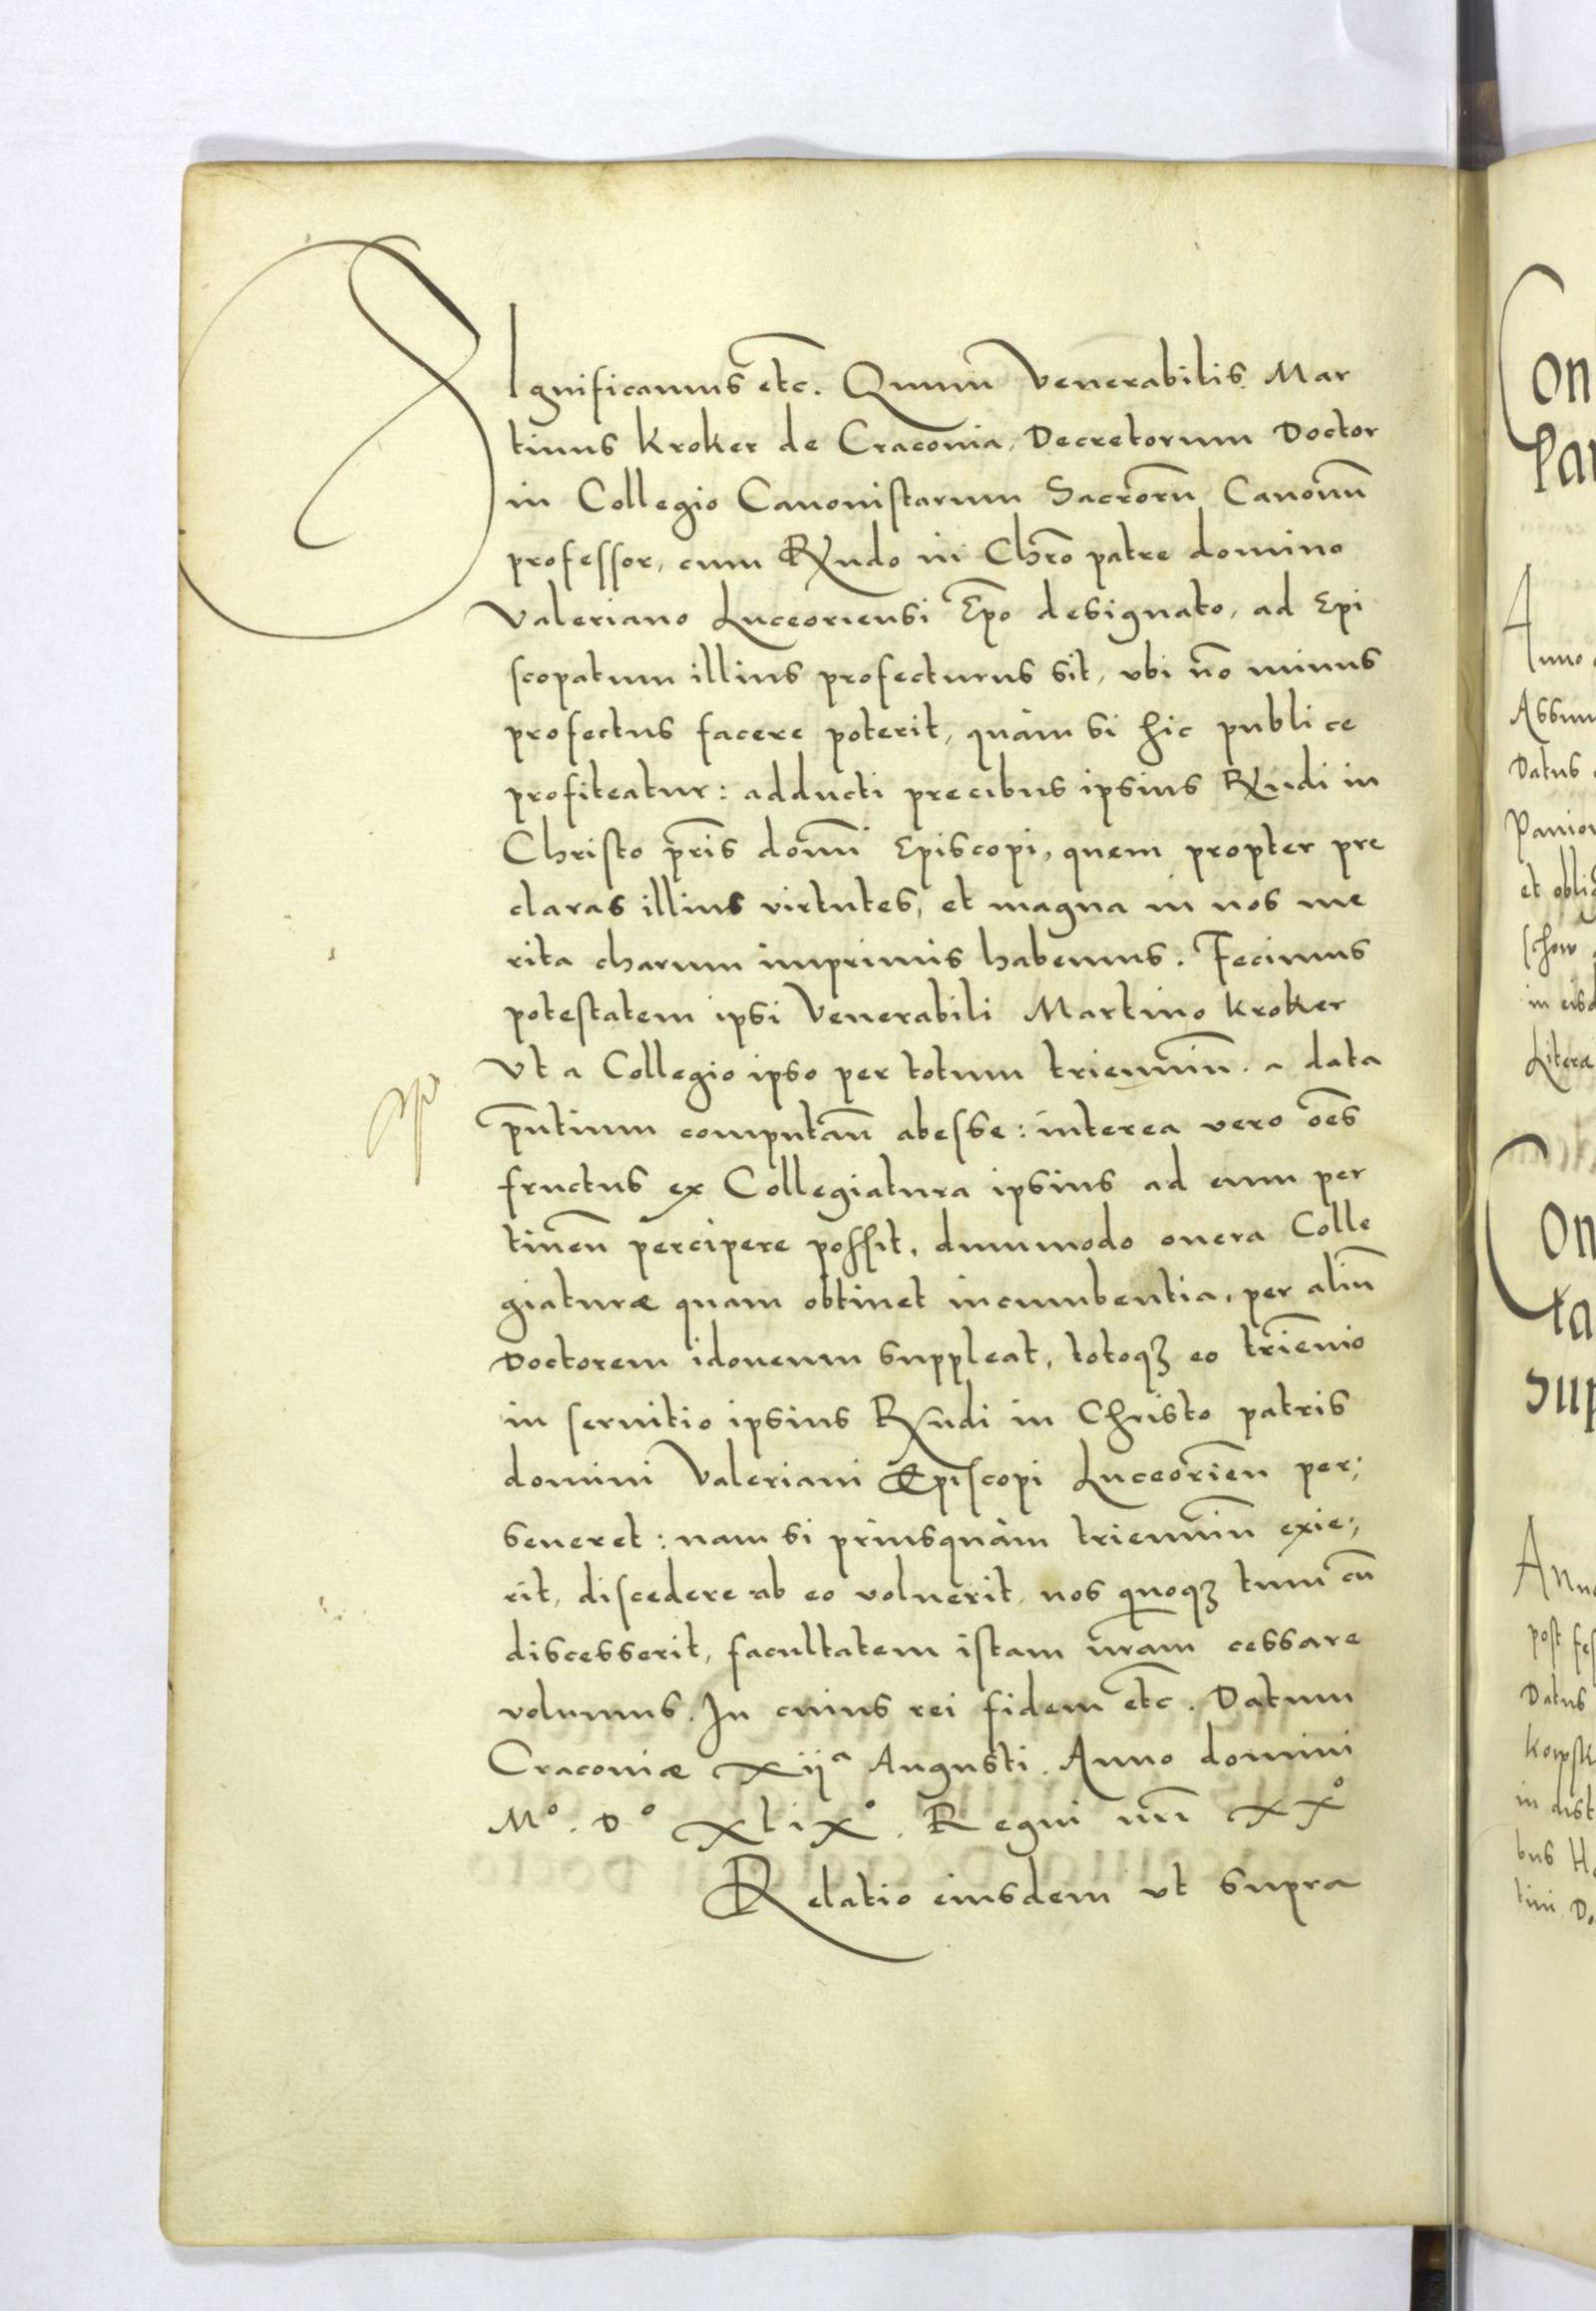 SIgnificamus etc̃. Quum Venerabilis Mar
tinus Kroker de Cracouia, Decretorum Doctor
in Collegio Canonistarum Sacrorũ Canonũ
professor, cum R̃ndo in Chr̃o patre domino
Valeriano Luceoriensi Ep̃o designato, ad Epi
scopatum illius profecturus sit, vbi nõ minus
profectus facere poterit, quàm si hic publice
profiteatur: adducti precibus ipsius R̃ndi in
Christo pr̃is domĩ Episcopi, quem propter pre
claras illius virtutes, et magna in nos me
rita charum imprimis habemus. Fecimus
potestatem ipsi Venerabili Martino Kroker
Vt a Collegio ipso per totum trienniũ a data
p̃ntium computañ abesse: interea vero oẽs
fructus ex Collegiatura ipsius ad eum per
tineñ percipere possit, dummodo onera Colle
giaturæ quam obtinet incumbentia, per aliũ
Doctorem idoneum suppleat, totoqꝫ eo triẽnio
in seruitio ipsius R̃ndi in Christo patris
domini Valeriani Episcopi Luceorieñ per;
seueret: nam si priusquàm trienniũ exie;
rit, discedere ab eo voluerit, nos quoqꝫ tum cũ
discesserit, facultatem istam nr̃am cessare
volumus. In cuius rei fidem etc̃. Datum
Cracouiæ xijª Augusti. Anno domini
Mº. Dº xlixº. Regni nr̃i xxº
Relatio eiusdem vt supra
On
Pa
Anno
Assum
Datus
Panior
et oblig
schow
in eisd
Literæ
On
ta
sup
Ann
post fes
Datus
Korpsk
in dist
bus H
tini Do